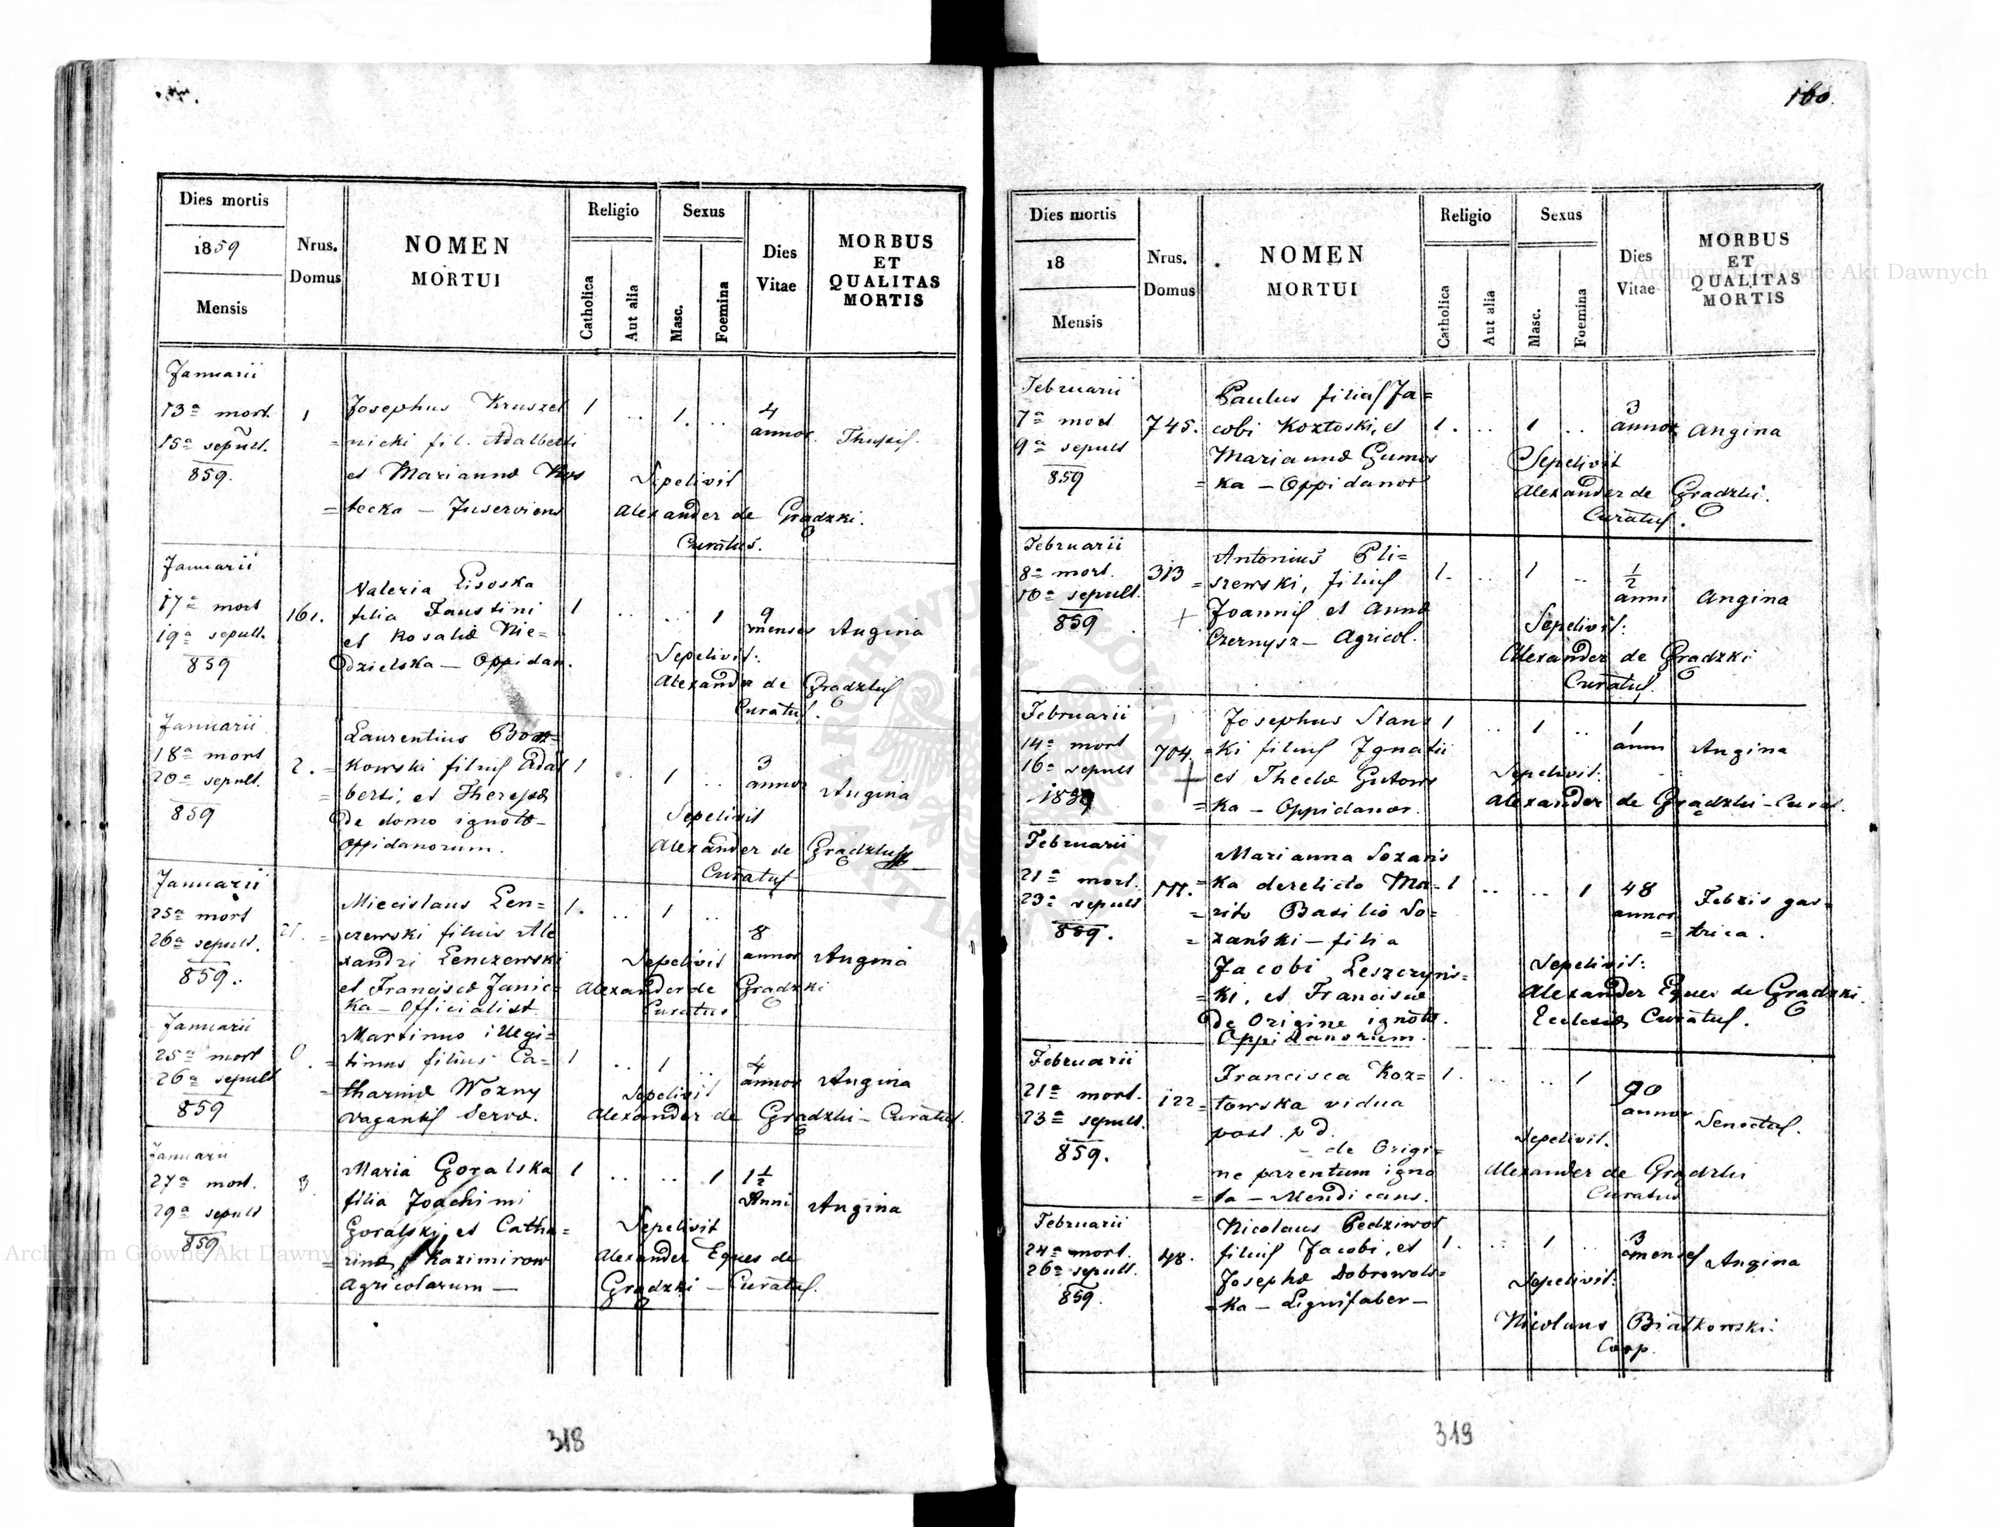 160.
Dies mortis
1859
Mensis
Nrus.
Domus
NOMEN
MORTUI
Religio
Catholica
Aut alia
Sexus
Masc.
Foemina
Dies
Vitae
MORBUS
ET
QUALITAS
MORTIS
Januarii
13a mort.
15a sepult.
859.
1
Josephus Kruszel
=nicki fil. Adalberti
et Mariannæ
=tecka — Inserviens
1 .. 1. ..
4
annor.
Sepelivit
Alexander de Gradzki.
Curatus.
Januarii
17a mort
19a sepult.
859
161.
Valeria Lisoska
filia Faustini
et Rosaliæ Nie=
dzielska — Oppidan.
1 .. .. 1
9
menses
Angina
Sepelivit:
Alexander de Gradzki
Curatus.
Januarii
18a mort
20a sepult.
859
2.
Laurentius
=kowski filius Adal
=berti, et Theresæ
de domo ignoto—
Oppidanorum.
1 .. 1 ..
3
annor
Angina
Sepelivit
Alexander de Gradzki
Curatus
Januarii
25a mort
26a sepult.
859.
Miecislaus Len=
=czewski filius Ale
xandri Lenczewski
et Franciscæ Janic=
ka — Officialist
1. .. 1 ..
8
annor
Angina
Sepelivit
Alexander de Gradzki
Curatus
Januarii
25a mort
26a sepult
859
0.
Martinus illegi=
=timus filius Ca=
=tharinæ Wozny
vagantis servæ.
1 .. 1 ..
4
annor
Angina
Sepelivit
Alexander de Gradzki — Curatus.
Januarii
27a mort.
29a sepult
859
3.
Maria Goralska
filia Joachimi
Goralski, et Catha=
=rinæ Kazimirow
Agricolarum —
1 .. .. 1
1 1/2
Anni
Angina
Sepelivit
Alexander Eques de
Gradzki — Curatus.
318
Dies mortis
18
Mensis
Nrus.
Domus
NOMEN
MORTUI
Religio
Catholica
Aut alia
Sexus
Masc.
Foemina
Dies
Vitae
MORBUS
ET
QUALITAS
MORTIS
Februarii
7a mort
9a sepult
859
745.
Paulus filius Ja=
cobi Koztoski, et
Mariannæ Gumos
=ka — Oppidanor
1. .. 1 ..
3
annor
Angina
Sepelivit
Alexander de Gradzki.
Curatus.
Februarii
8a mort.
10a sepult.
859
313
+
Antonius Pli=
=szewski, filius
Joannis et Annæ
Czernysz — Agricol.
1. .. 1 ..
1/2
anni
Angina
Sepelivit:
Alexander de Gradzki
Curatus.
Februarii
14a mort
16a sepult
1859
704.
+
Josephus Stans
=ki filius Ignatii
et Theclæ Gutows
=ka — Oppidanor.
1 .. 1 ..
1
anni
Angina
Sepelivit:
Alexander de Gradzki — Curat.
Februarii
21a mort.
23a sepult
859.
Marianna Sozańs
=ka derelicta Ma=
=rito Basilio So=
=zański — filia
Jacobi Leszczyńs=
=ki, et Franciscæ
de Origine ignota.
Oppidanorum.
1 .. .. 1
48
annor
Febris gas=
=trica.
Sepelivit:
Alexander Eques de Gradzki.
Ecclesiæ Curatus.
Februarii
21a mort.
23a sepult.
859.
122
Francisca Koz=
=towska vidua
post p d.
— de Origi=
ne parentum igno
=ta — Mendicans.
1. .. .. 1
90
annor
Senectus.
Sepelivit.
Alexander de Gradzki
Curatus
Februarii
24a mort.
26a sepult.
859.
48.
Nicolaus Pedziwot
filius Jacobi, et
Josephæ Dobrowols=
=ka — Lignifaber —
1. .. 1 ..
3
menses
Angina
Sepelivit:
Nicolaus Białkowski.
Coop.
319
Archiwum Główne Akt Dawnych
Archiwum Główne Akt Dawnych